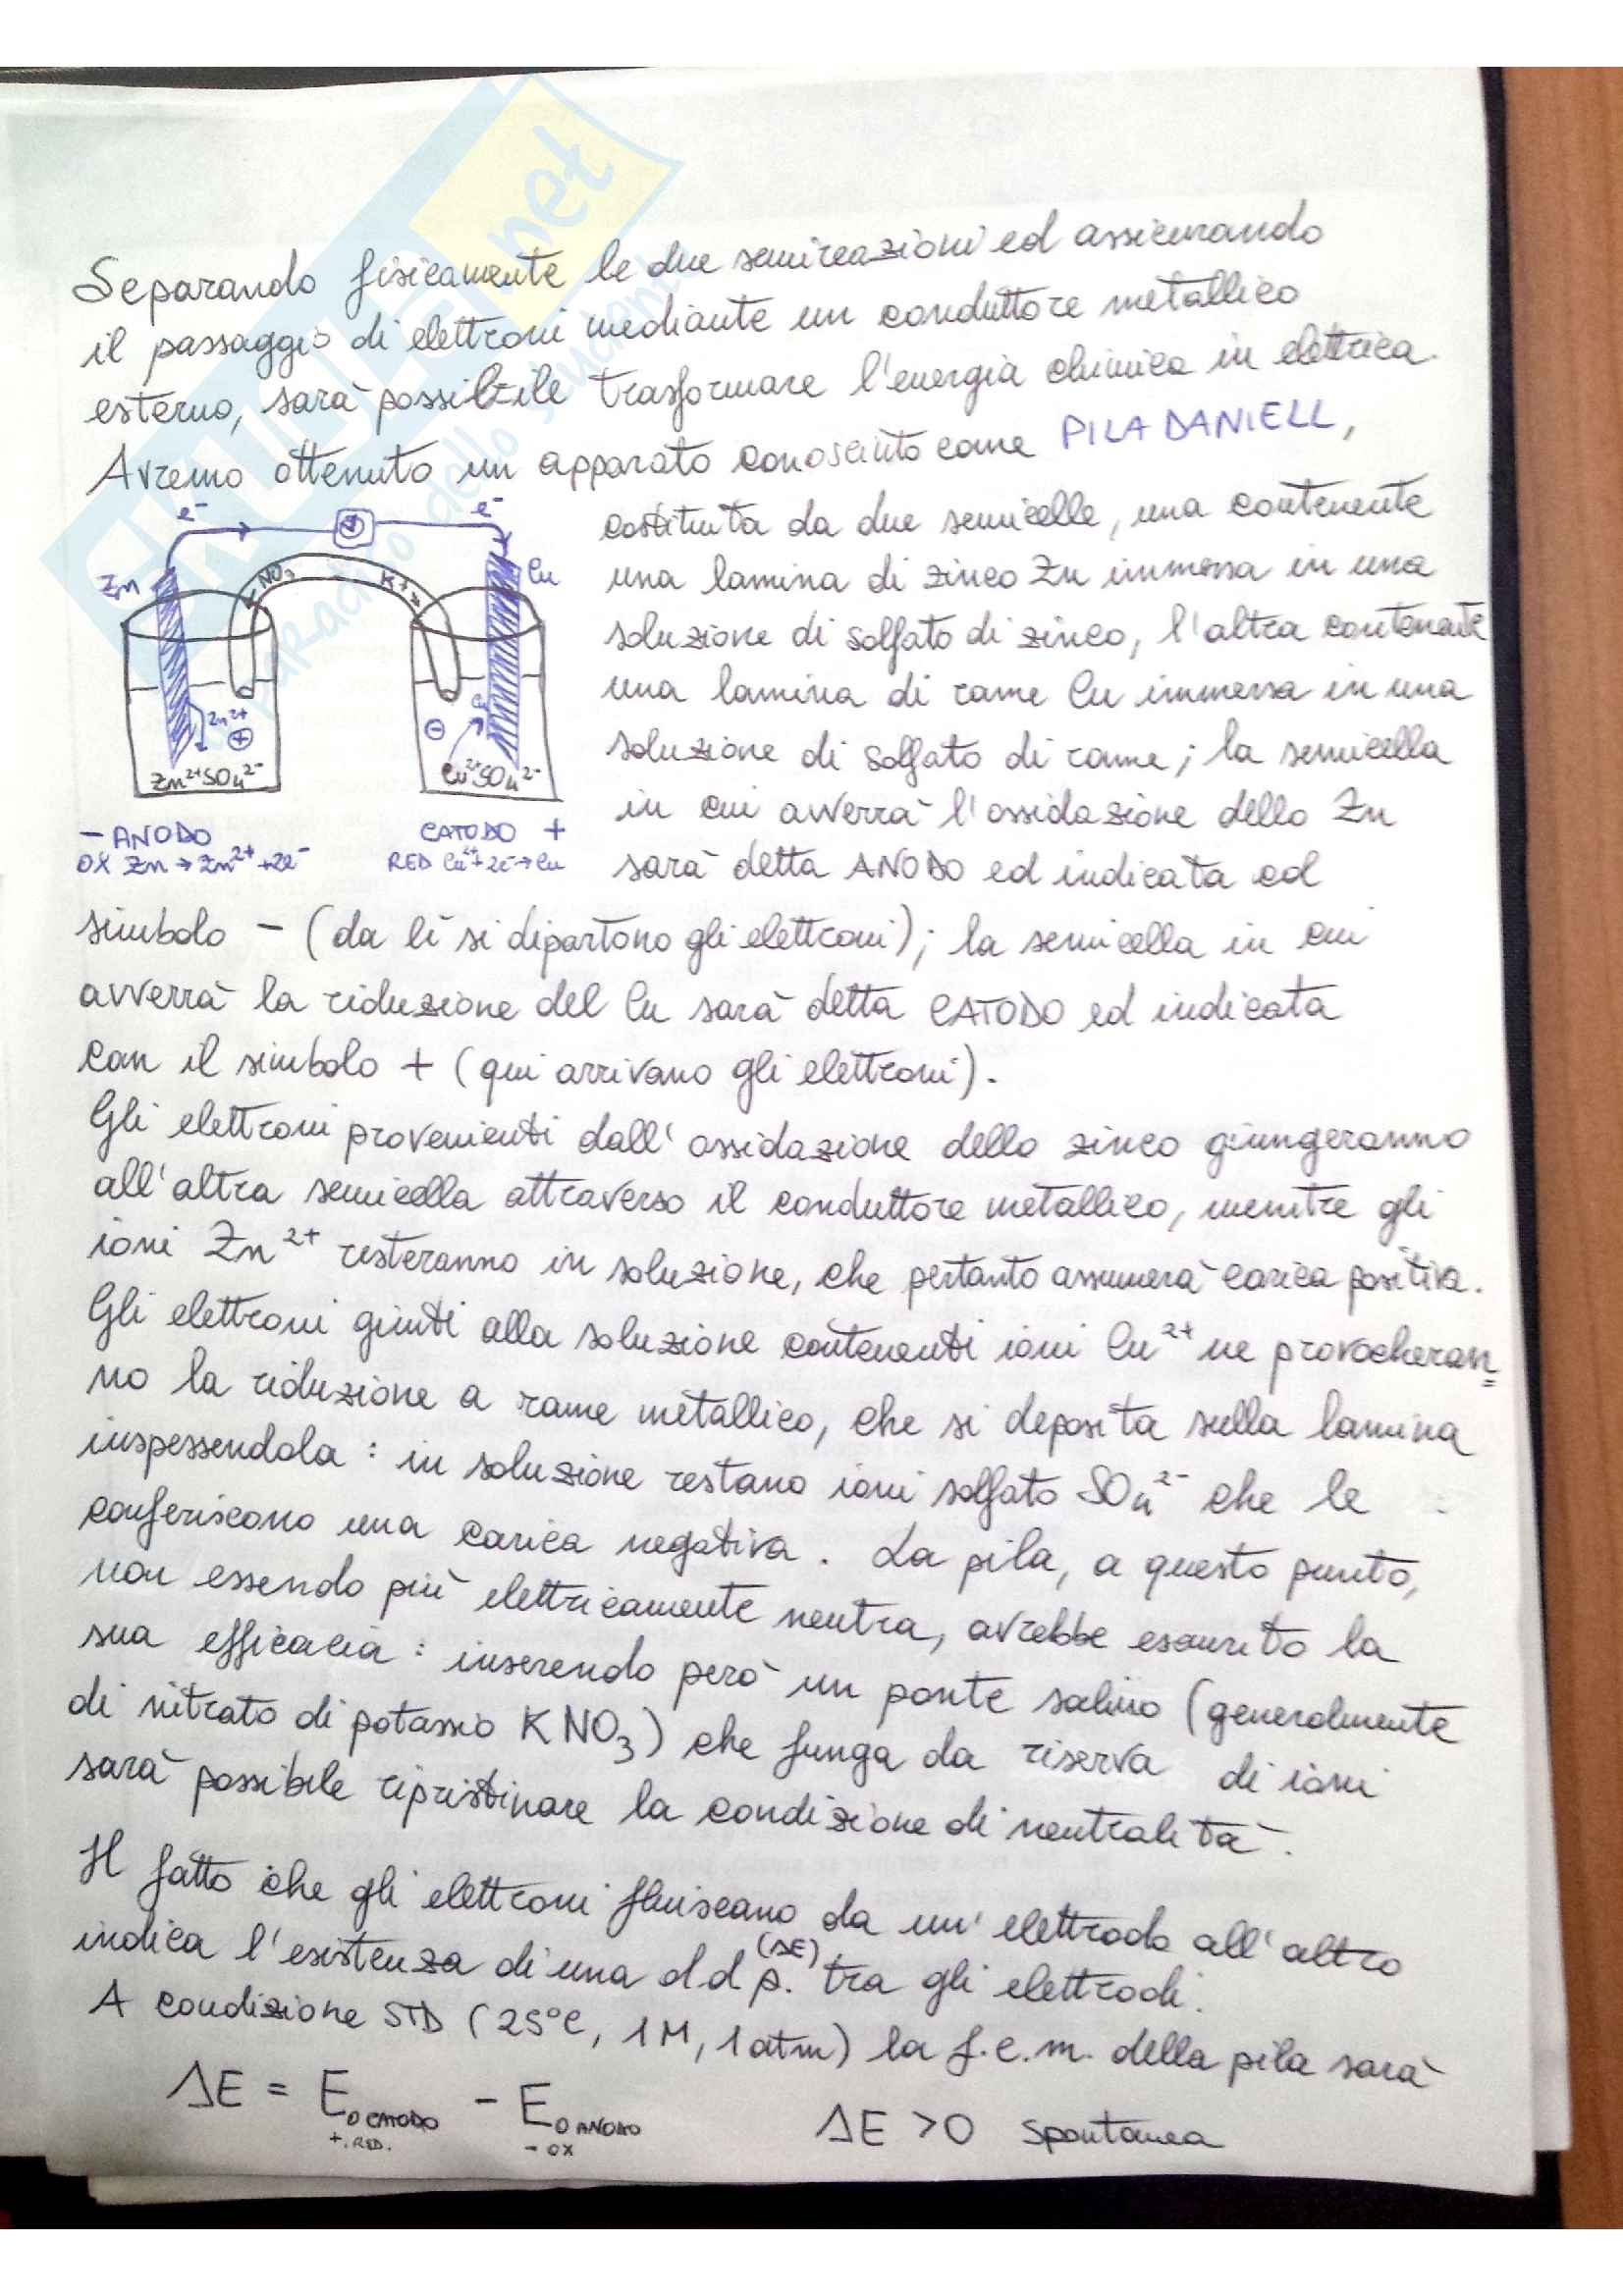 Separando fisicamente le due semireazioni ed assicurando
il passaggio di elettroni mediante un conduttore metallico
esterno, sarà possibile trasformare l'energia chimica in elettrica.
Avremo ottenuto un apparato conosciuto come PILA DANIELL,
costituita da due semicelle, una contenente
una lamina di zinco Zn immersa in una
soluzione di solfato di zinco, l'altra contenente
una lamina di rame Cu immersa in una
soluzione di solfato di rame; la semicella
in cui avverrà l'ossidazione dello Zn
sarà detta ANODO ed indicata col
e⁻ e⁻
Zn NO₃⁻ K⁺ Cu
Zn²⁺ ⊕ ⊖ Cu
Zn²⁺SO₄²⁻ Cu²⁺SO₄²⁻
- ANODO CATODO +
OX Zn → Zn²⁺ + 2e⁻ RED Cu²⁺+ 2e⁻ → Cu
simbolo - (da lì si dipartono gli elettroni); la semicella in cui
avverrà la riduzione del Cu sarà detta CATODO ed indicata
con il simbolo + (qui arrivano gli elettroni).
Gli elettroni provenienti dall'ossidazione dello zinco giungeranno
all'altra semicella attraverso il conduttore metallico, mentre gli
ioni Zn²⁺ resteranno in soluzione, che pertanto assumerà carica positiva.
Gli elettroni giunti alla soluzione contenenti ioni Cu²⁺ ne provocheran=
no la riduzione a rame metallico, che si deposita sulla lamina
inspessendola : in soluzione restano ioni solfato SO₄²⁻ che le
conferiscono una carica negativa. La pila, a questo punto,
non essendo più elettricamente neutra, avrebbe esaurito la
sua efficacia : inserendo però un ponte salino (generalmente
di nitrato di potassio KNO₃) che funga da riserva di ioni
sarà possibile ripristinare la condizione di neutralità.
Il fatto che gli elettroni fluiscano da un'elettrodo all'altro
indica l'esistenza di una d.d.p. (ΔE) tra gli elettrodi.
A condizione STD (25°C, 1M, 1atm) la f.e.m. della pila sarà
ΔE = E₀ CATODO - E₀ ANODO ΔE > 0 spontanea
+. RED. - OX